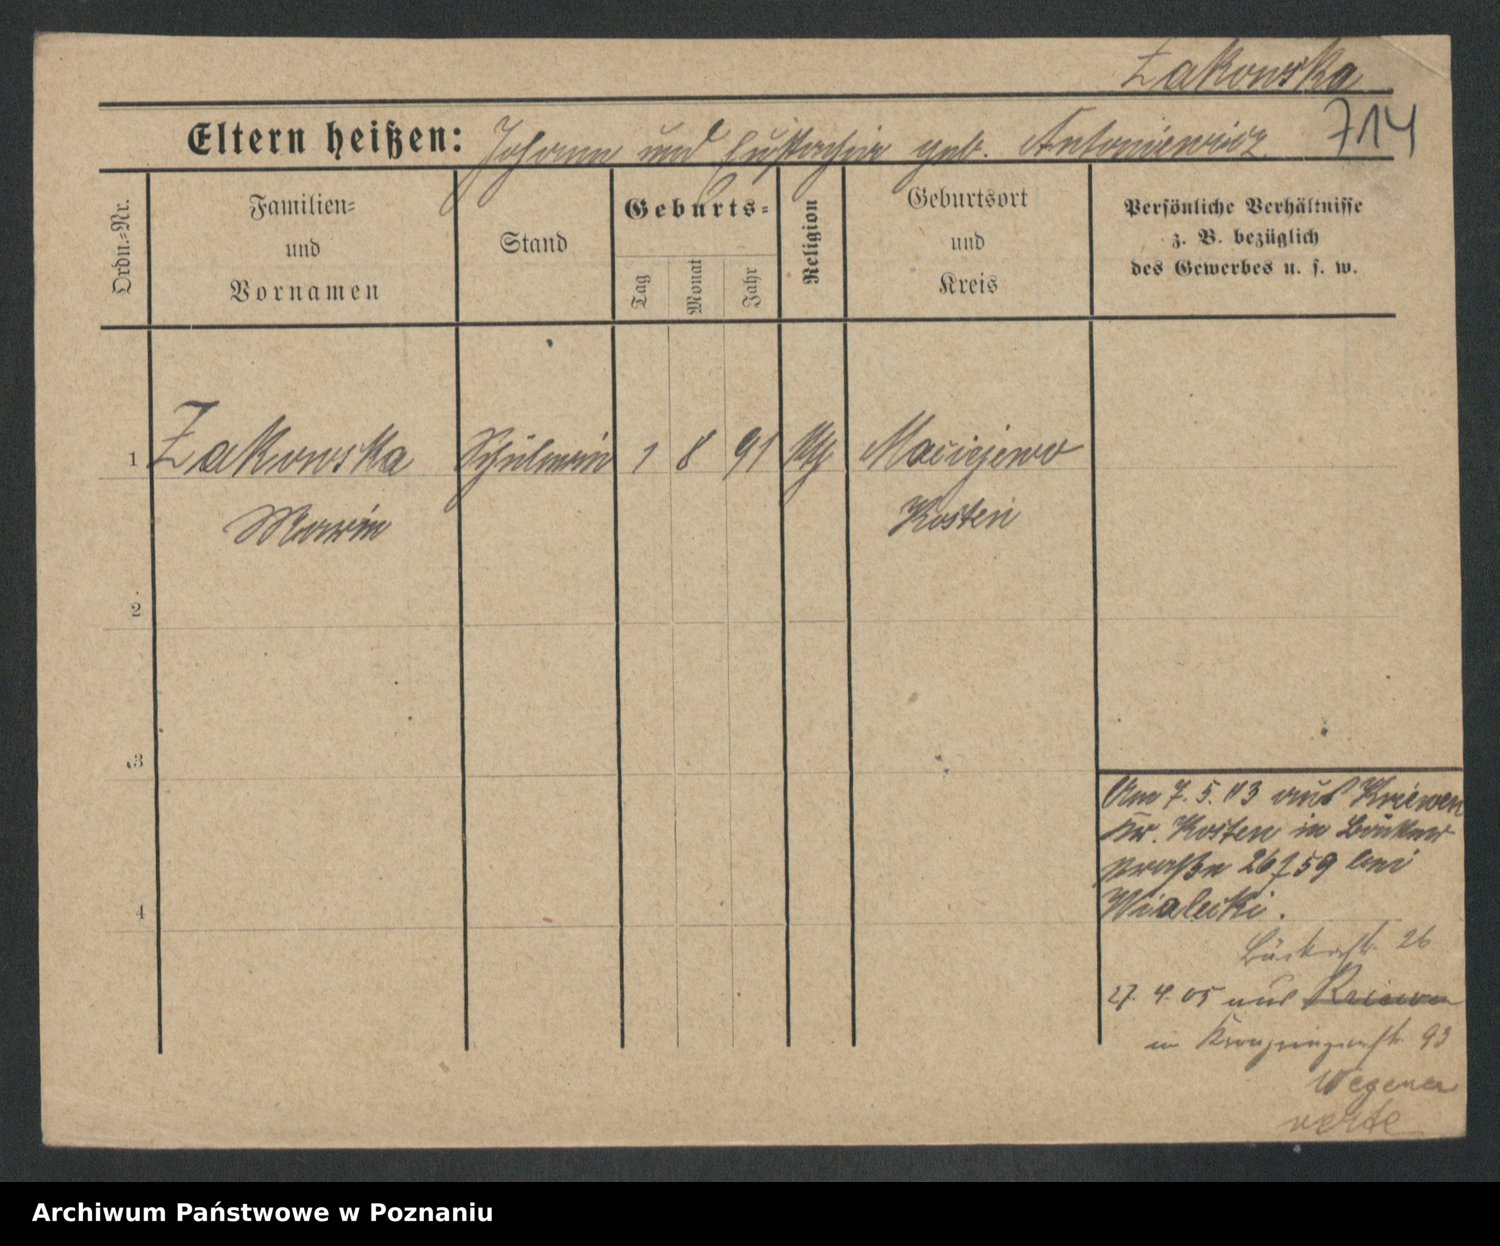 Żakowska
714
Eltern heißen: Johann und Eustachia geb. Antoniewicz
Ordn.=Nr.
Familien=
und
Vornamen
Stand
Geburts=
Tag
Monat
Jahr
Religion
Geburtsort
und
Kreis
Persönliche Verhältnisse
z. B. bezüglich
des Gewerbes u. s. w.
1 Żakowska Schülerin 1 8 91 Maciejewo
Marie Kosten
2
3
4
Am 7. 5. 03 aus Kriewen
Kr. Kosten in Bäcker
straße 26 59 bei
Wialecki.
Bäckerstr. 26
27. 4. 05 aus Kriewen
in Kronprinzenstr. 93
Wegener
verte
Archiwum Państwowe w Poznaniu